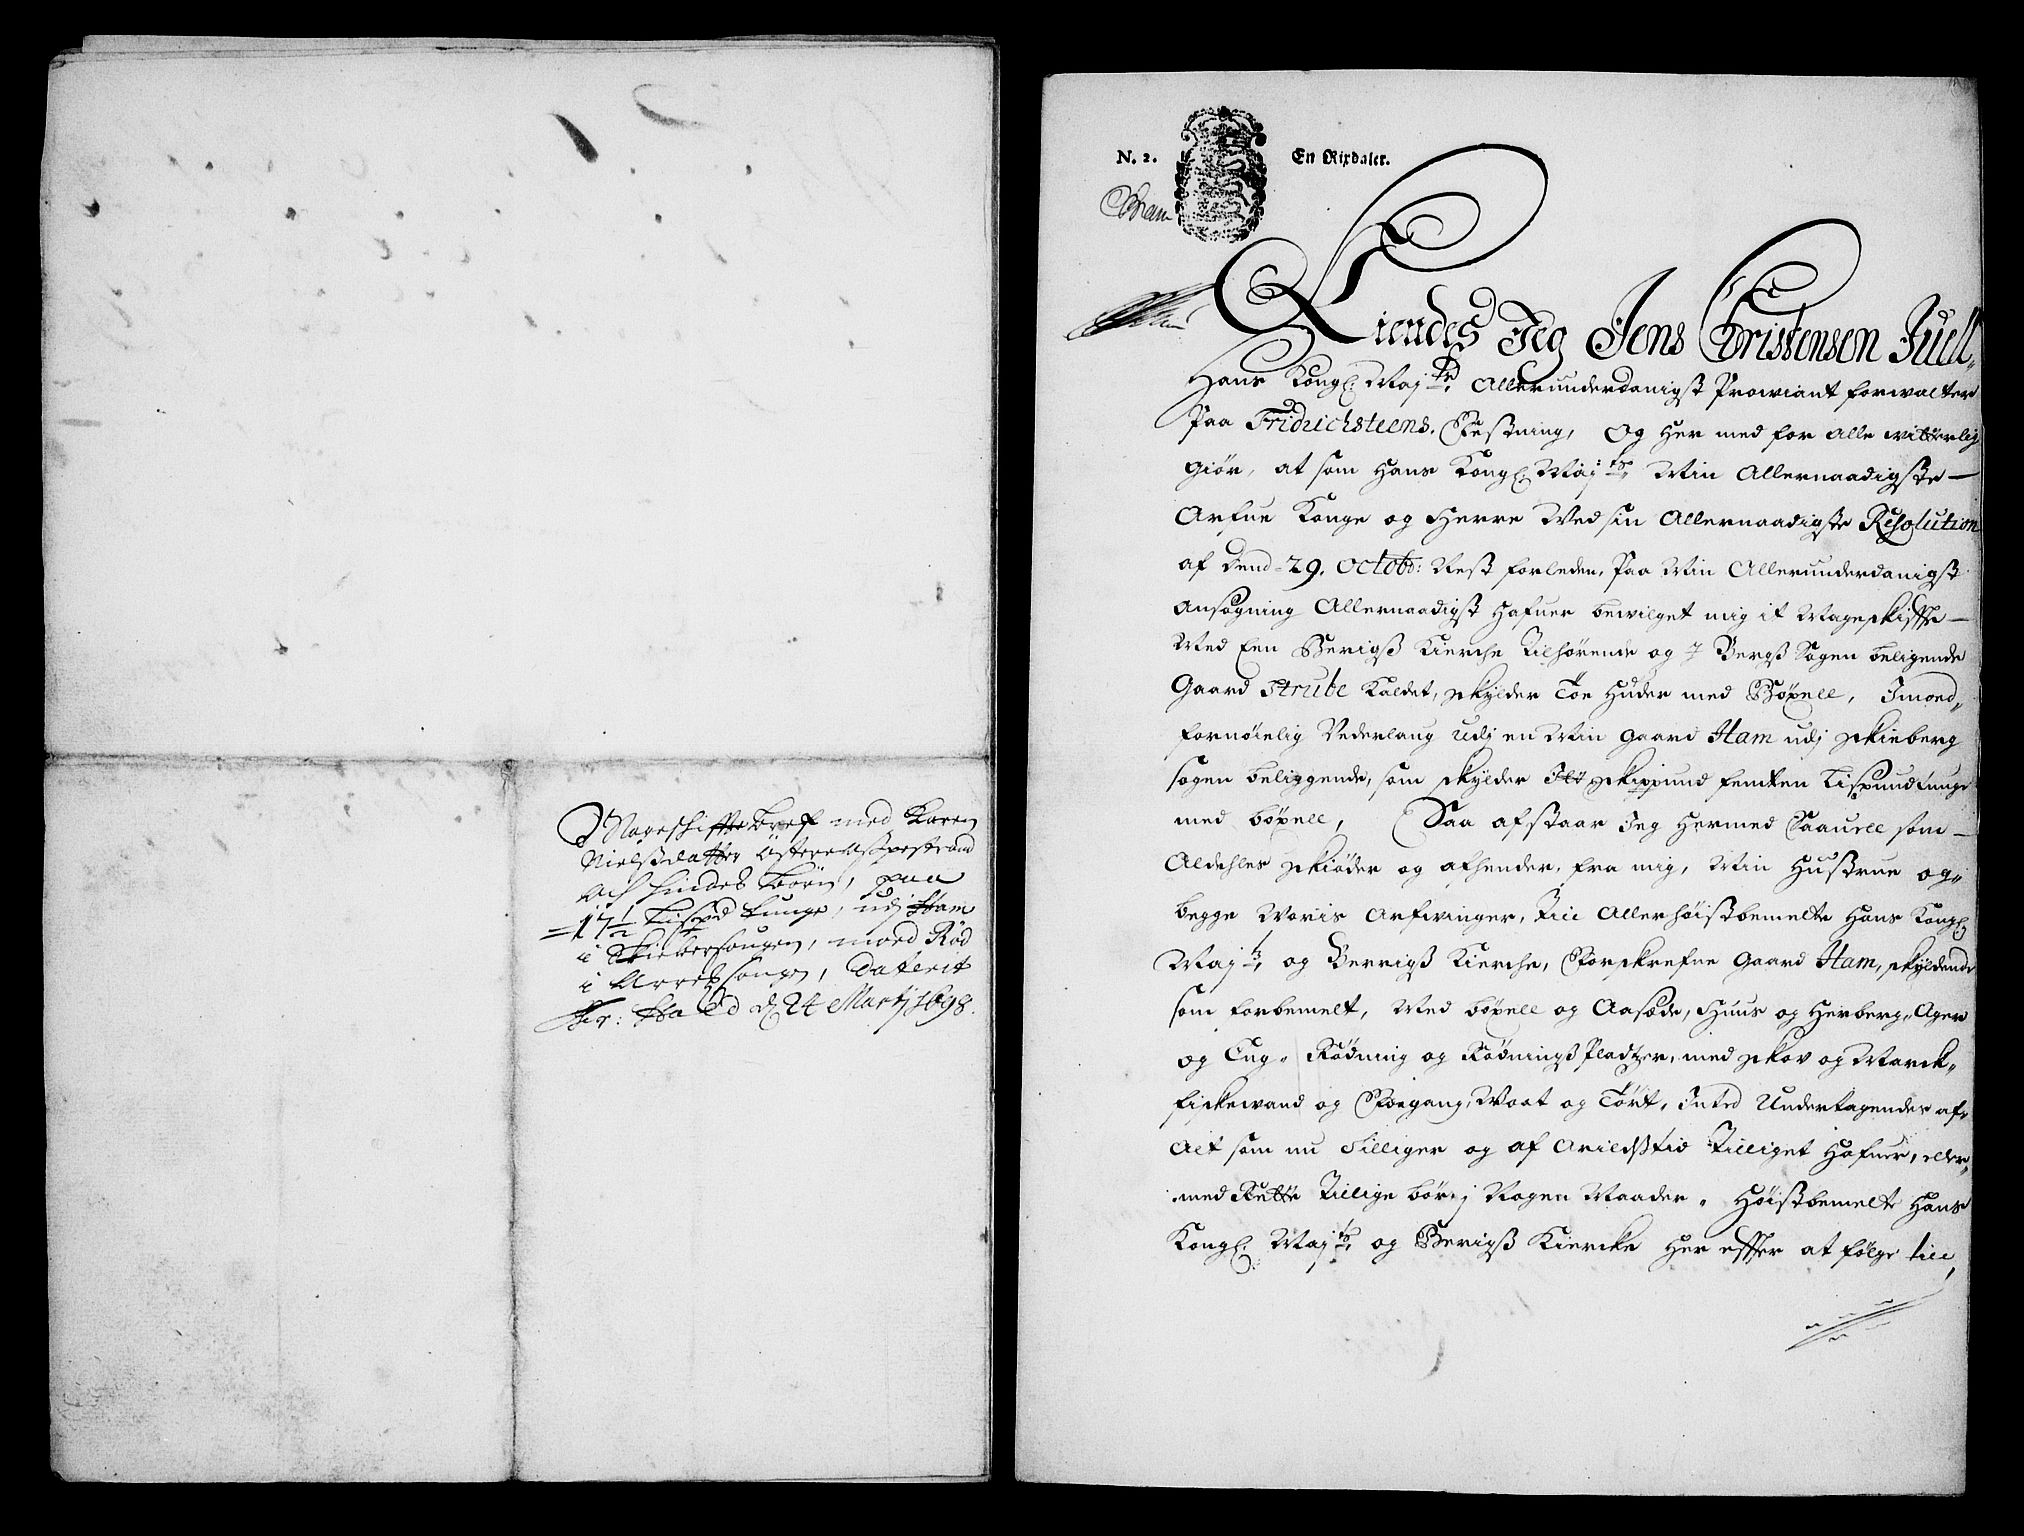 Mageschiffte breff med Karen
Nielsdatter
och hindes børn, paa
17 1/2 Lispd tunge, udj Ham
i Skiebersougen, moed Rød
i sougen, daterit
d 24 Martj 1698.
N. 2. En Rixdaler.
Ham
Kiendes Jeg Jens Christensen Juell
Hans Kongl: Maj:ts Allerunderdanigst Prowiant forwalter
Paa Fridrichsteens Festning, Og Her med for Alle witterlig
Giør, at som Hans Kongl: Maj:ts Min Allernaadigste
Arfue Konge og Herre Ved sin Allernaadigste Resolution
af Dend 29. Octobr: Nest forleden, Paa Min Allerunderdanigst
Ansøgning Allernaadigst Hafuer bewilget mig it Mageskiffte
Med Een Berigs Kierche Tilhørende og J Bergs Sogen beligende
Gaard Strube Kaldet, skylder Toe Huder med Bøxell, Jmoed
fornøielig Vederlaug Udj en Min Gaard Ham udj Skieberg
sogen beliggende, som skylder skippund femten Lispund tunge
med bøxell, Saa afstaar Jeg Hermed Saauell som
Aldehles skiøder og afhender, fra mig, Min Hustrue og
begge Voris Arfwinger, Till Allerhøistbemelte Hans Kongl:
Maj:ts og Berrigs Kierche, Forskrefne Gaard Ham, skyldende
som forbemelt, Med bøxell og Aasæde, Huus og Herberg, Ager
og Eng, Rødning og Rødnings Pladtzer, med skov og Marck,
fiskewand og Foegang, Woot og Tørt, Inted Undertagendes af
Alt som nu Tilliger og af Arilds tid Tilliget Hafuer, eller
med Rette Tillige bør j Nogen Maader, Høistbemelte Hans
Kongl: Maj:ts og Berigs Kiercke Her effter at følge till